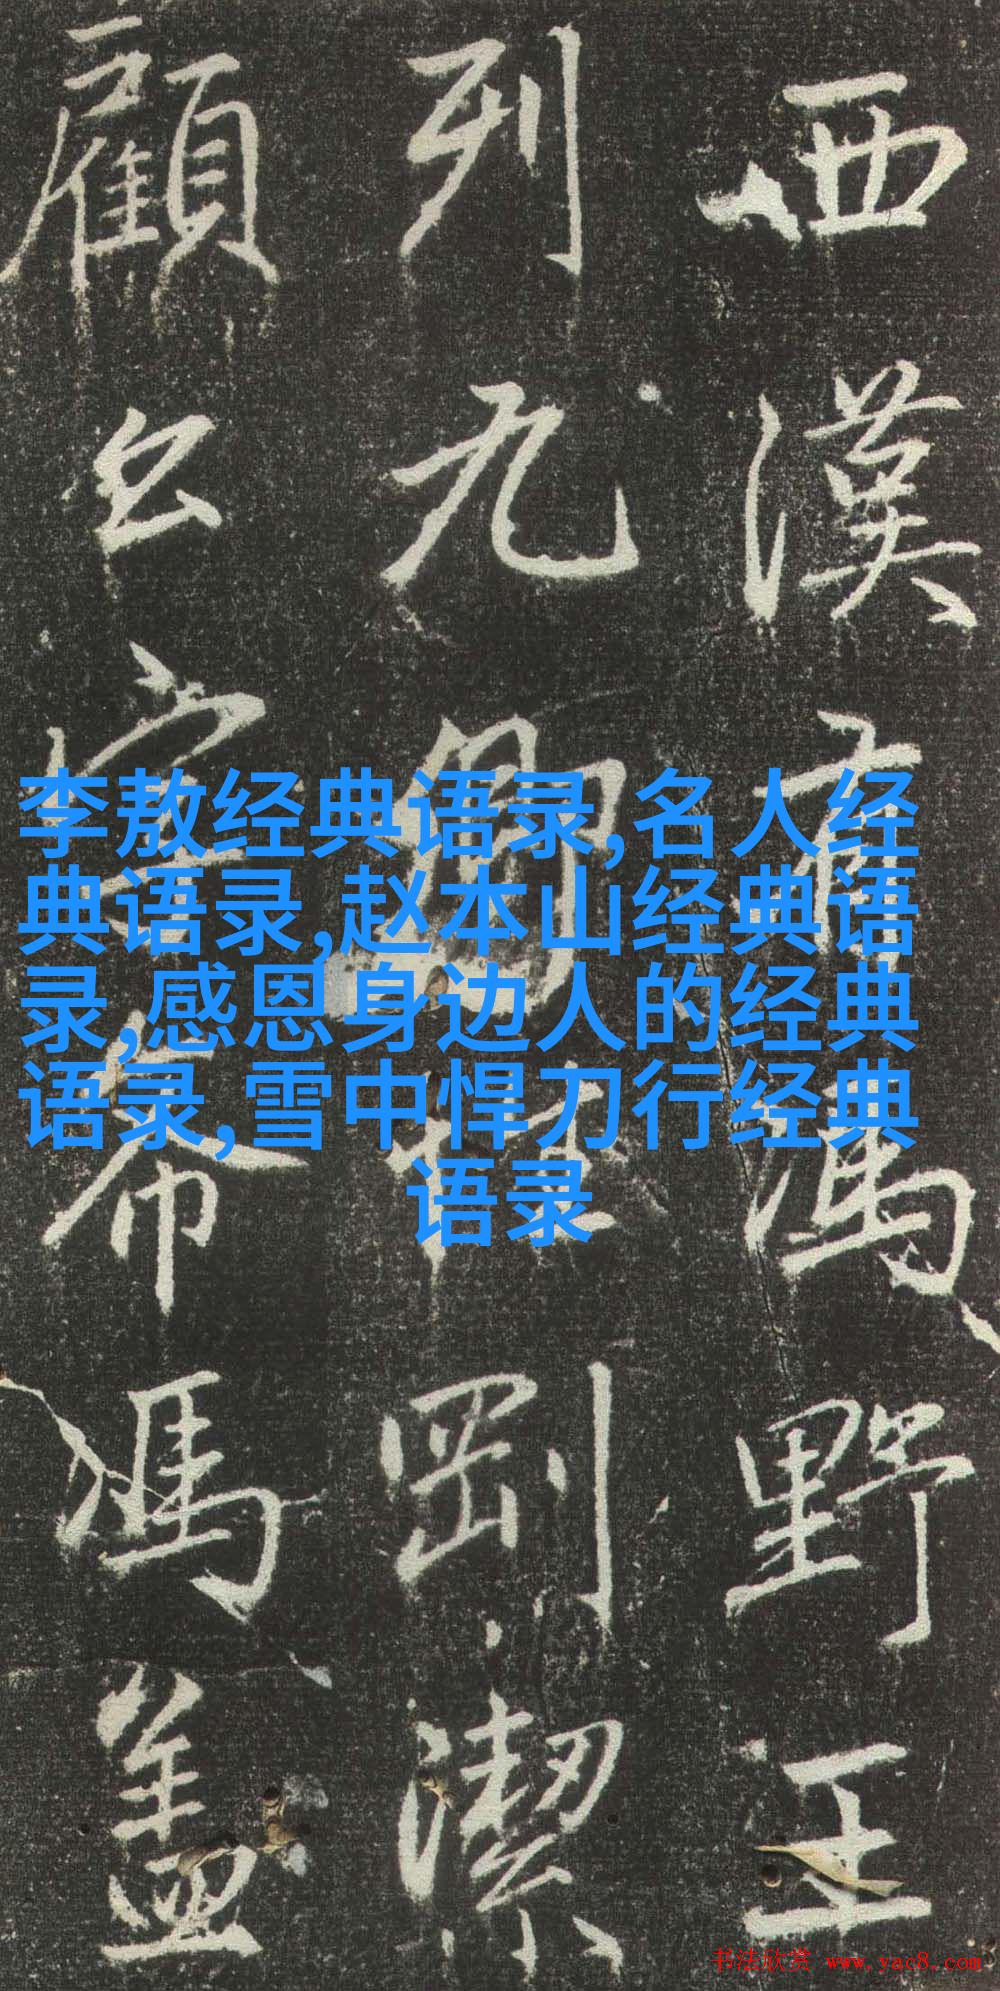 李敖经典语录,名人经
典语录,赵本山经典语
录,感恩身边人的经典
语录,雪中悍刀行经典
语录
西漢有馮野王
列九卿剛潔
顧公字希馮蓋
书法欣赏 www.yac8.com